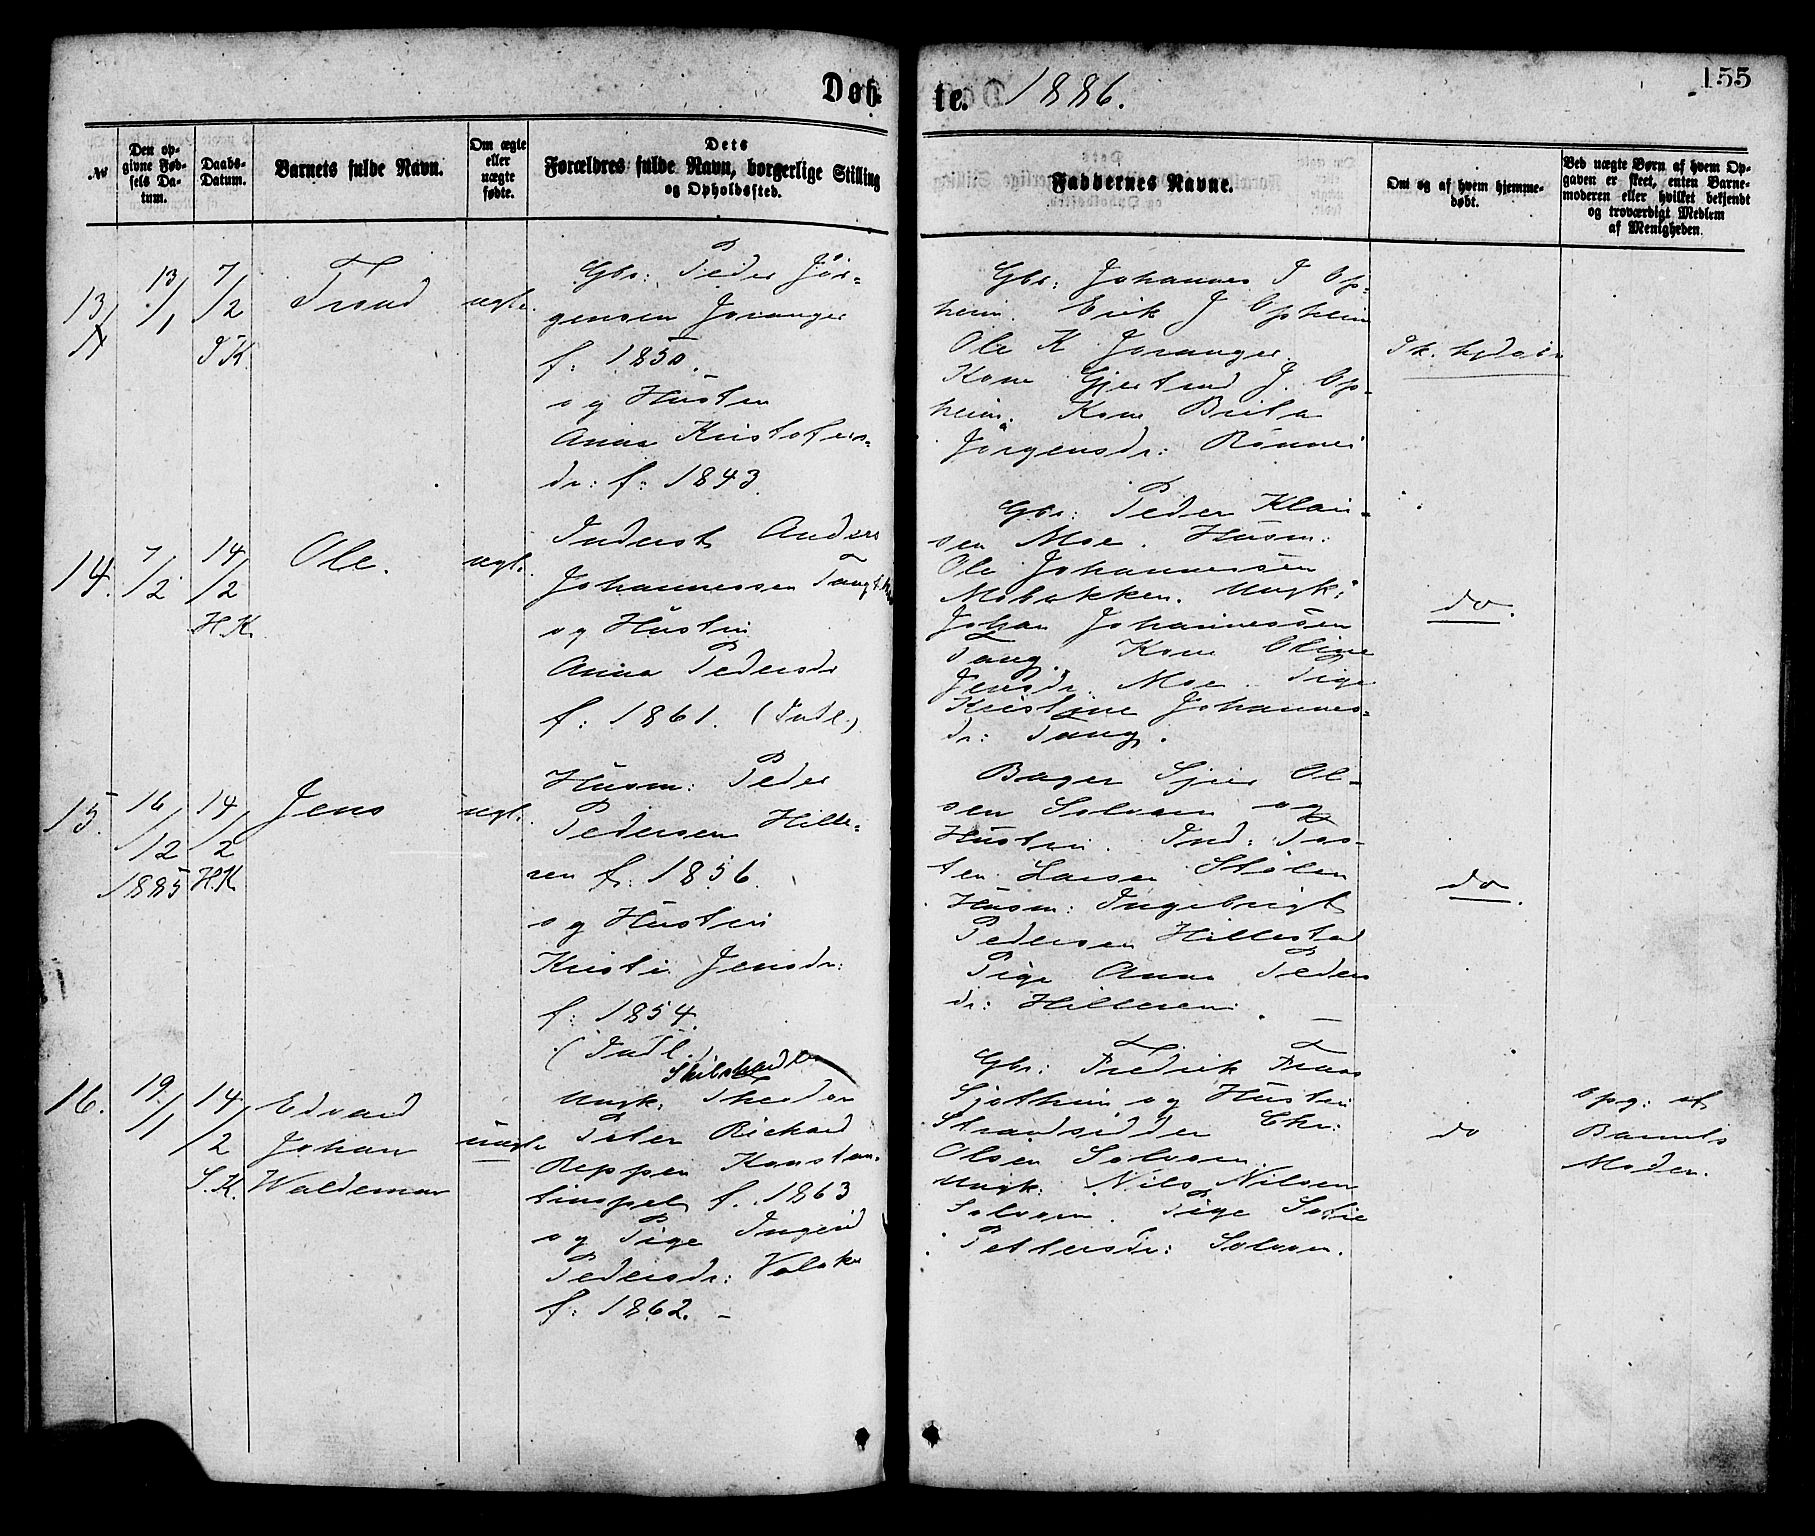 Døb-
te. 1886.
155
№
Den op-
givne Fød-
sels Da-
tum.
Daabs-
Datum.
Barnets fulde Navn.
Om ægte
eller
uægte
fødte.
Dets
Forældres fulde Navn, borgerlige Stilling
og Opholdssted.
Faddernes Navne.
Om og af hvem hjemme-
døbt.
Ved uægte Børn af hvem Op-
gaven er skeet, enten Barne-
moderen eller hvilket bekjendt
og troværdigt Medlem
af Menigheden.
13
13/1
7/2
Trond
ægte.
Gbr: Peder Jør-
gensen Joranger
f: 1850.
og Hustru
Anna Kristofers-
dr: f: 1843.
Gbr: Johannes J Op-
heim. Erik J Opheim
Ole K Joranger.
Kone Gjertrud J. Op-
heim. Kone Brita
Jørgensdr: Rønnei
14.
7/2
14/2
H.K.
Ole.
ægte.
Inderst Anders
Johannessen Tang
og Hustru
Anna Pedersdr
f: 1861. (Indl.)
Gbr: Peder Klau-
sen Moe. Husm:
Ole Johannessen
Mobakken. Ungk:
Johan Johannessen
Tang. Kone Oline
Jensdr. Moe. Pige
Kristine Johannes-
dr: Tang.
do.
15.
16/12
1885
14/2
H.K
Jens
ægte.
Husm: Peder
Pedersen Hille-
ren f: 1856.
og Hustru
Kristi Jensdr:
f: 1854.
(Indl.)
Bager Sjur Ol-
sen Solvorn og
Hustru. Ind: Tos-
ten Larsen Stølen
Husm: Ingebrigt
Pedersen Hillestad
Pige Anna Peders
dr: Hilleren.
do.
16.
19/1
14/2
S.K.
Edvard
Johan
Waldemar
uægte
Ungk: Theodor
Peter Richard
Reppen
f. 1863
og Pige Ingerid
Pedersdr: Volaker
f: 1862. –
Gbr: Fredrik Frans
og Hustru
Strandsidder Chr:
Olsen Solvorn.
Ungk: Nils Nilsen
Solvorn. Pige Sofie
Pettersdr: Solvorn.
do
Opg: af
Barnets
Moder.